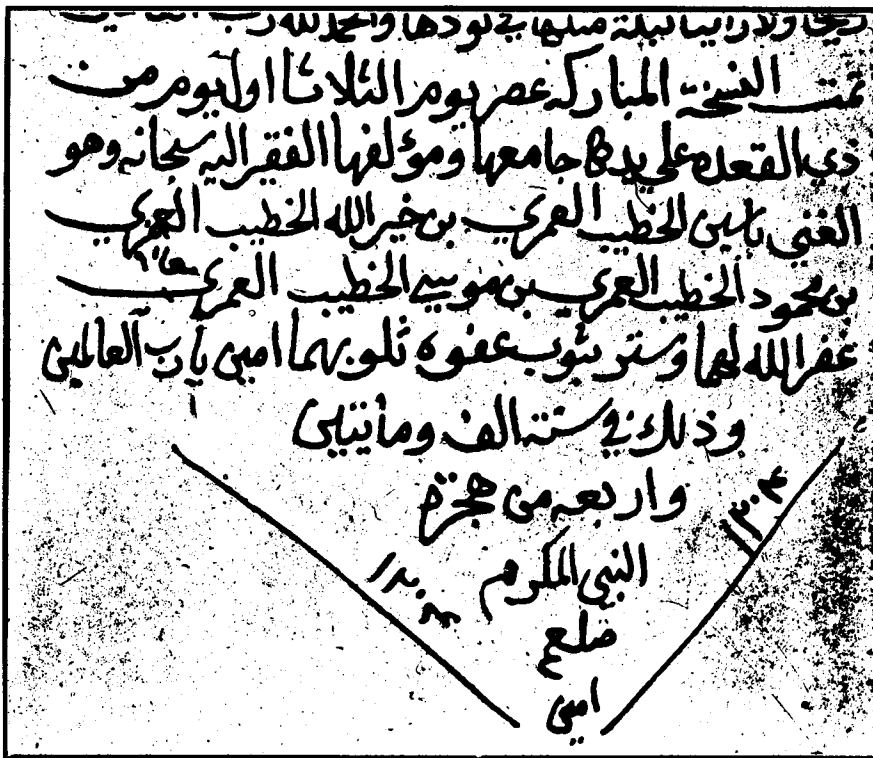 ولا راينا ليلة مثلها في نورها والحمد لله رب
تمت النسخة المباركه عصر يوم الثلاثا اول يوم من
ذي القعده علي يد جامعها ومؤلفها الفقير اليه سبحانه وهو
الغني ياسين الخطيب العمري بن خير الله الخطيب العمري
بن محمود الخطيب العمري بن موسي الخطيب العمري
غفر الله لهما وستر بثوب عفوه ثلوبهما امين يارب العالمين
وذلك في سنة الف ومأتين
واربعه من هجرة
النبي المكرم
صلعم
امين
١٢٠٤
١٢٠٤